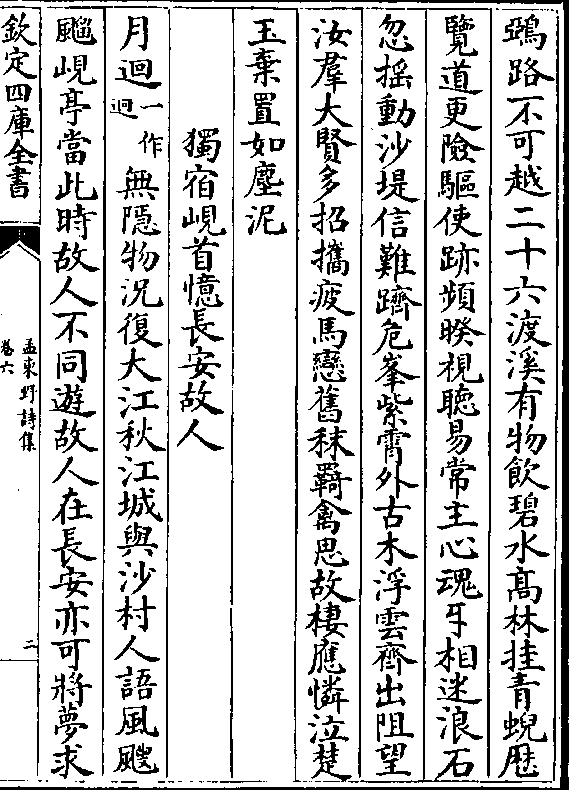 鵶路不可越二十六渡溪有物飲碧水高林挂青蜺歴
覽道更險驅使跡頻睽視聽易常主心魂㸦相迷浪石
忽揺動沙堤信難躋危峯紫霄外古木浮雲齊出阻望
汝羣大賢多招攜疲馬戀舊秣羇禽思故棲應憐泣楚
玉棄置如塵泥
獨宿峴首憶長安故人
月迥一作迴無隠物況復大江秋江城與沙村人語風颼
飀峴亭當此時故人不同遊故人在長安亦可將夢求
欽定四庫全書
孟東野詩集
卷六
二